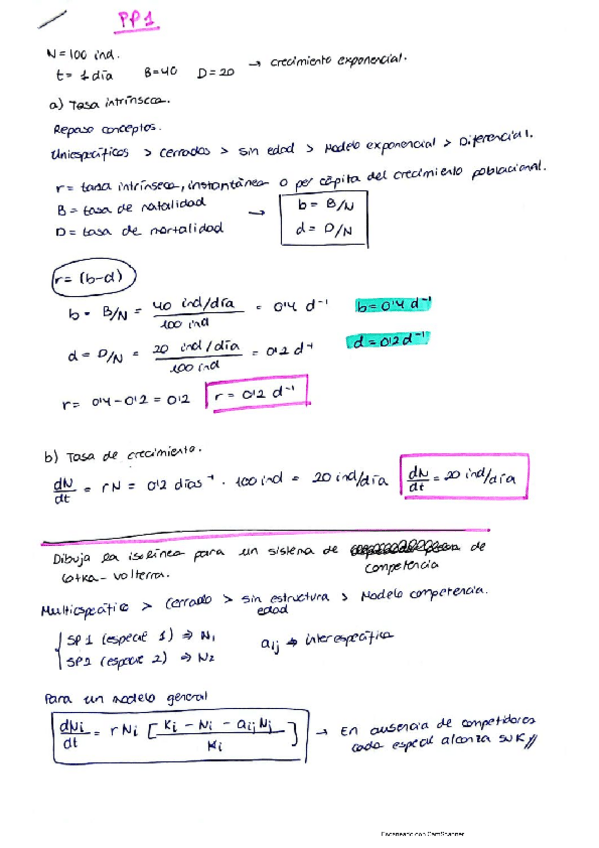 PP1
N = 100 ind.
t = 1 día B = 40 D = 20 → crecimiento exponencial.
a) Tasa intrínseca.
Repaso conceptos.
Uniespecíficos > cerrados > sin edad > Modelo exponencial > Diferencial.
r = tasa intrínseca, instantánea o per cápita del crecimiento poblacional.
B = tasa de natalidad → b = B/N
D = tasa de mortalidad d = D/N
r = (b-d)
b = B/N = 40 ind/día / 100 ind = 0'4 d⁻¹ b = 0'4 d⁻¹
d = D/N = 20 ind/día / 100 ind = 0'2 d⁻¹ d = 0'2 d⁻¹
r = 0'4 - 0'2 = 0'2 r = 0'2 d⁻¹
b) Tasa de crecimiento.
dN/dt = rN = 0'2 días⁻¹ · 100 ind = 20 ind/día dN/dt = 20 ind/día
Dibuja la isolínea para un sistema de de
competencia
Lotka-Volterra.
Multiespecífico > cerrado > sin estructura > Modelo competencia.
edad
SP1 (especie 1) ⇒ N₁ aij ⇒ interespecífica
SP2 (especie 2) ⇒ N₂
Para un modelo general
dNi/dt = r Ni [Ki - Ni - aij Nj / Ki] → En ausencia de competidores
cada especie alcanza su K //
Escaneado con CamScanner